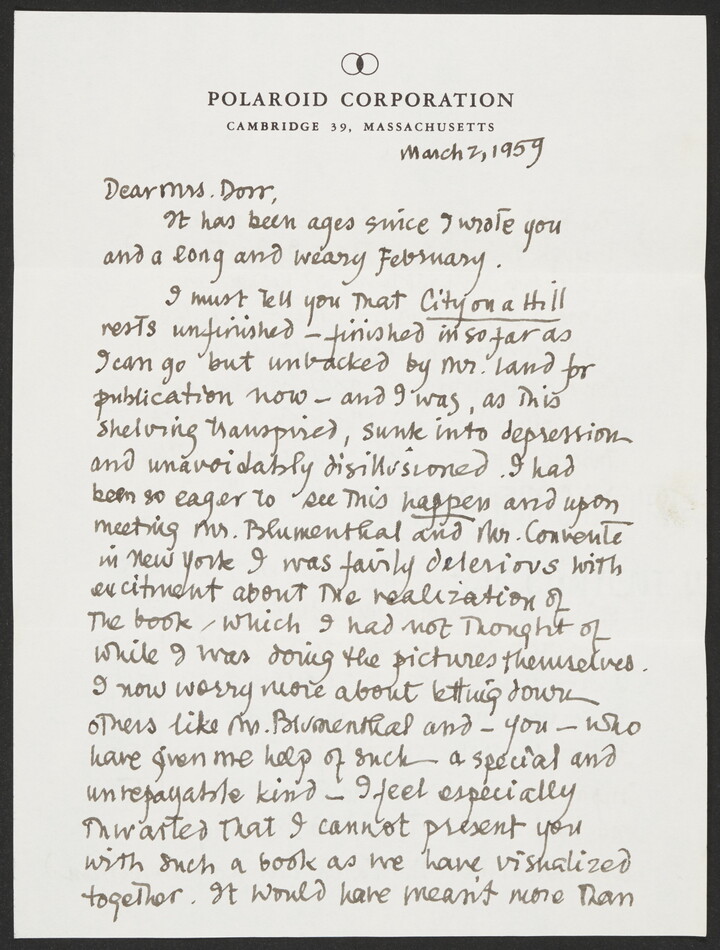 POLAROID CORPORATION
CAMBRIDGE 39, MASSACHUSETTS
March 2, 1959
Dear Mrs. Dorr,
It has been ages since I wrote you
and a long and weary February.
I must tell you that City on a Hill
rests unfinished – finished in so far as
I can go but unbacked by Mr. Land for
publication now – and I was, as this
shelving transpired, sunk into depression
and unavoidably disillusioned. I had
been so eager to see this happen and upon
meeting Mr. Blumenthal and Mr. Convente
in New York I was fairly delerious with
excitment about the realization of
the book, which I had not thought of
while I was doing the pictures themselves.
I now worry more about letting down
others like Mr. Blumenthal and – you – who
have given me help of such a special and
unrepayable kind – I feel especially
thwarted that I cannot present you
with such a book as we have visualized
together. It would have meant more than